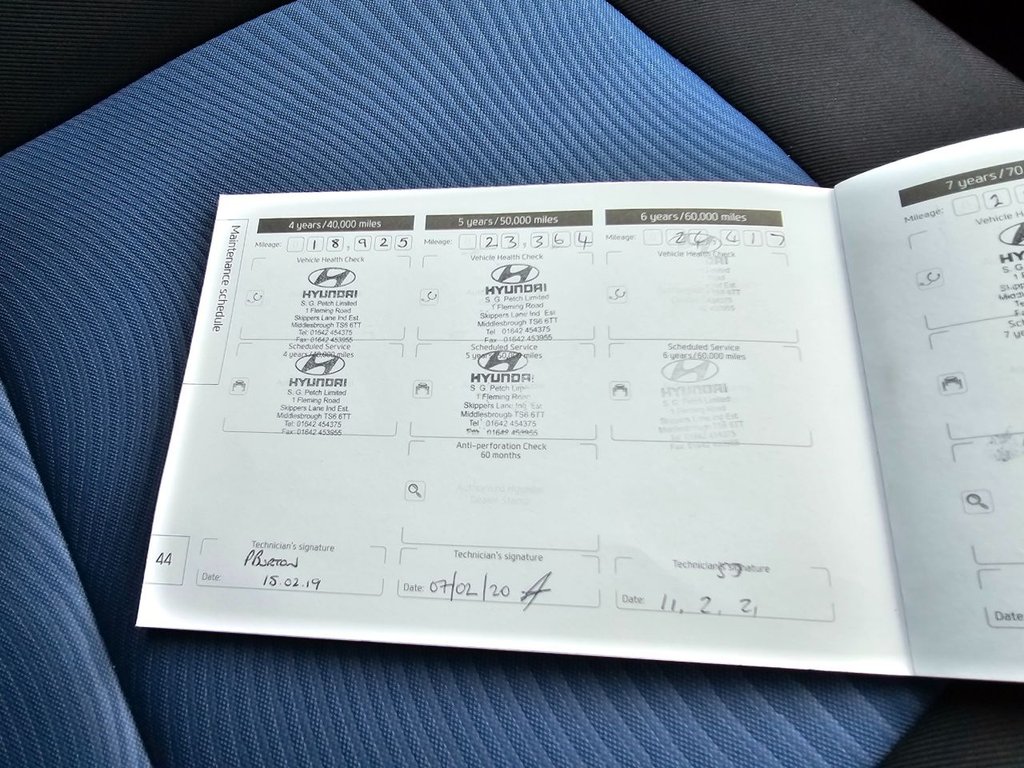 Maintenance schedule
4 years/40,000 miles
Mileage: 18,925
Vehicle Health Check
HYUNDAI
S. G. Petch Limited
1 Fleming Road
Skippers Lane Ind Est.
Middlesbrough TS6 6TT
Tel: 01642 454375
Fax: 01642 453955
Scheduled Service
4 years/40,000 miles
HYUNDAI
S. G. Petch Limited
1 Fleming Road
Skippers Lane Ind Est.
Middlesbrough TS6 6TT
Tel: 01642 454375
Fax: 01642 453955
Technician's signature
P BURTON
Date: 15.02.19
44
5 years/50,000 miles
Mileage: 23,364
Vehicle Health Check
HYUNDAI
S. G. Petch Limited
1 Fleming Road
Skippers Lane Ind Est.
Middlesbrough TS6 6TT
Tel: 01642 454375
Fax: 01642 453955
Scheduled Service
5 years/50,000 miles
HYUNDAI
S. G. Petch
1 Fleming Road
Skippers Lane Ind. Est.
Middlesbrough TS6 6TT
Tel: 01642 454375
01642 453955
Anti-perforation Check
60 months
Authorised Hyundai
Dealer Stamp
Technician's signature
Date: 07/02/20
6 years/60,000 miles
Mileage: 26,417
Vehicle Health Check
Scheduled Service
6 years/60,000 miles
HYUNDAI
S. G. Petch Limited
1 Fleming Road
Skippers Lane Ind Est.
Middlesbrough TS6 6TT
Technician's signature
Date: 11. 2. 21
7 years/70
Mileage: 2
Vehicle H
HY
S. G.
1 F
Skippers
Sche
7 y
Date